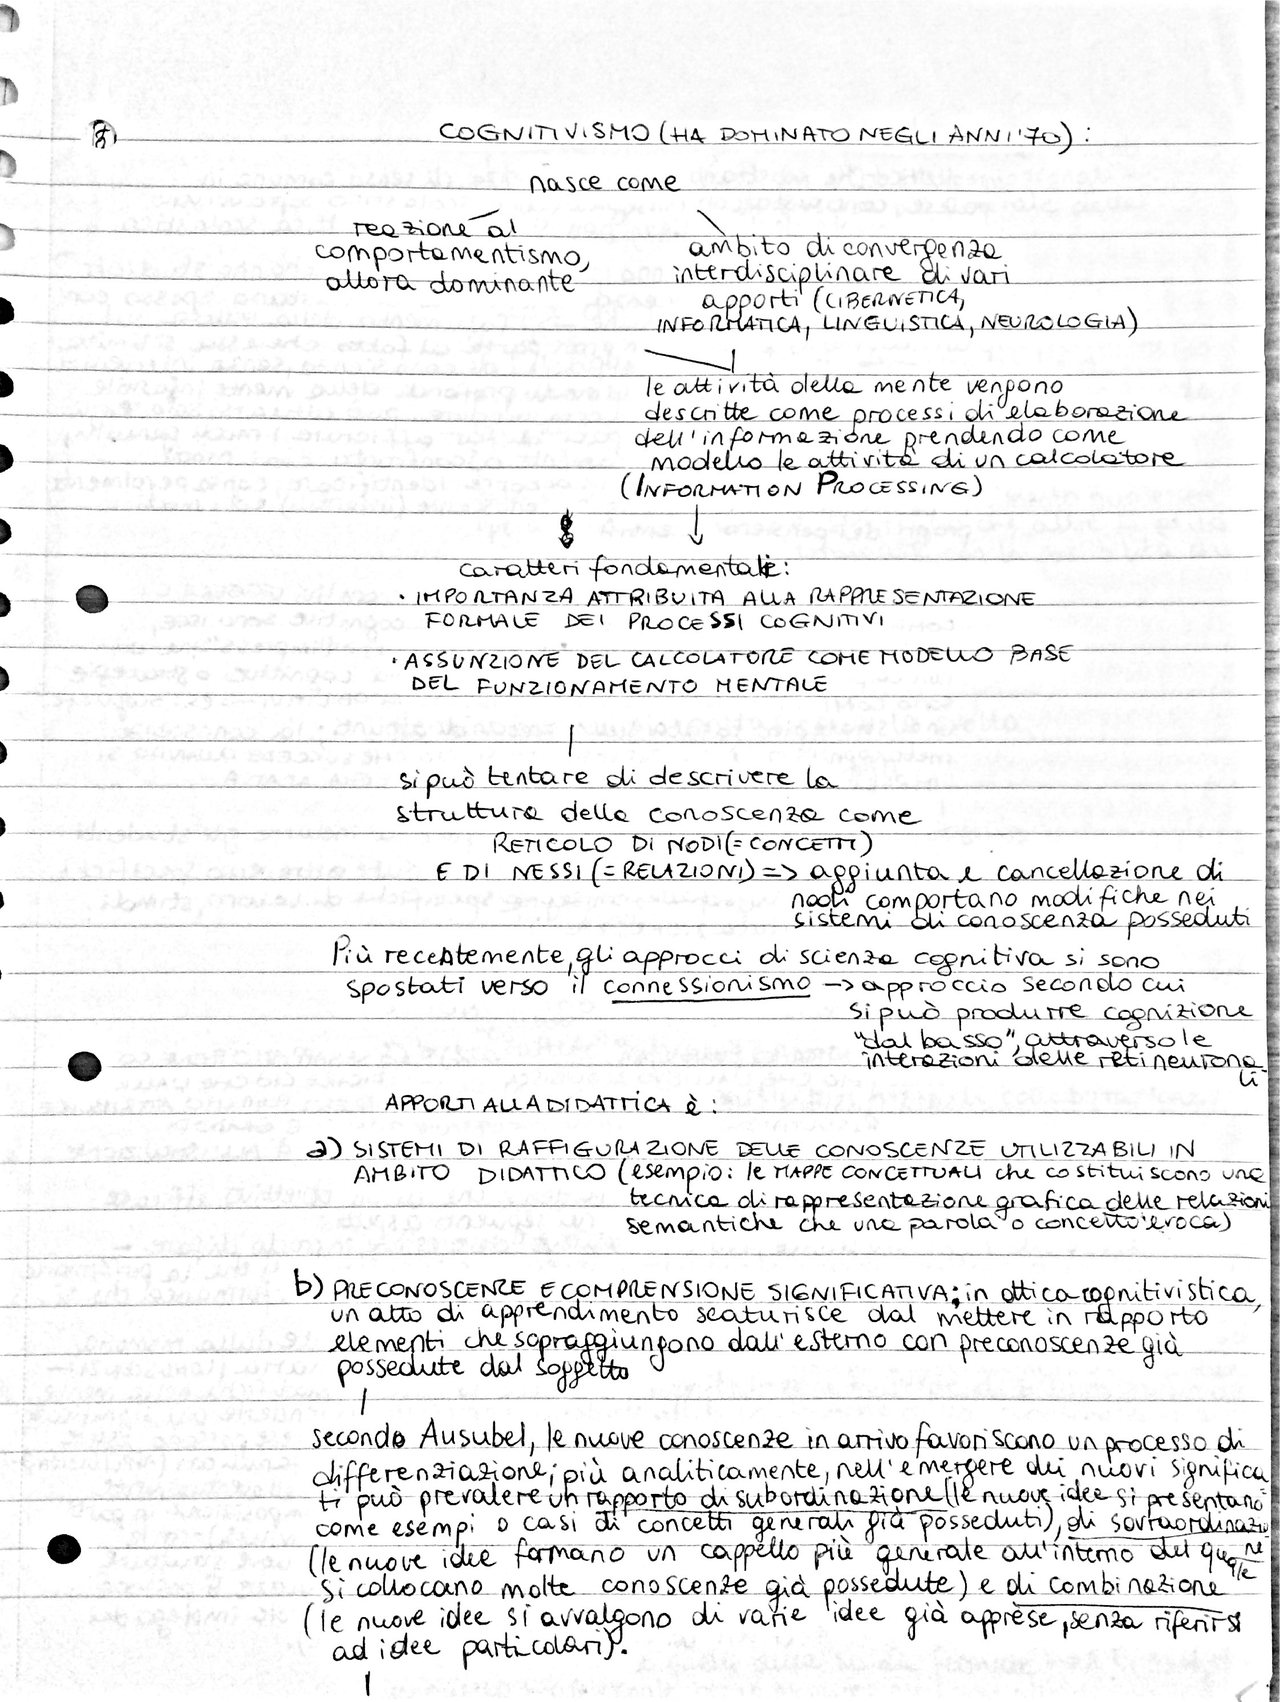 8)
COGNITIVISMO (HA DOMINATO NEGLI ANNI '70) :
nasce come
reazione al
comportamentismo,
allora dominante
ambito di convergenza
interdisciplinare di vari
apporti (CIBERNETICA,
INFORMATICA, LINGUISTICA, NEUROLOGIA)
le attività della mente vengono
descritte come processi di elaborazione
dell'informazione prendendo come
modello le attività di un calcolatore
(INFORMATION PROCESSING)
caratteri fondamentali:
• IMPORTANZA ATTRIBUITA ALLA RAPPRESENTAZIONE
FORMALE DEI PROCESSI COGNITIVI
• ASSUNZIONE DEL CALCOLATORE COME MODELLO BASE
DEL FUNZIONAMENTO MENTALE
si può tentare di descrivere la
struttura della conoscenza come
RETICOLO DI NODI (= CONCETTI)
E DI NESSI (= RELAZIONI) => aggiunta e cancellazione di
nodi comportano modifiche nei
sistemi di conoscenza posseduti
Più recentemente, gli approcci di scienza cognitiva si sono
spostati verso il connessionismo -> approccio secondo cui
si può produrre cognizione
"dal basso", attraverso le
interazioni delle reti neurona-
li
APPORTI ALLA DIDATTICA è :
a) SISTEMI DI RAFFIGURAZIONE DELLE CONOSCENZE UTILIZZABILI IN
AMBITO DIDATTICO (esempio: le MAPPE CONCETTUALI che costituiscono una
tecnica di rappresentazione grafica delle relazioni
semantiche che una parola o concetto evoca)
b) PRECONOSCENZE E COMPRENSIONE SIGNIFICATIVA; in ottica cognitivistica,
un atto di apprendimento scaturisce dal mettere in rapporto
elementi che sopraggiungono dall'esterno con preconoscenze già
possedute dal soggetto
secondo Ausubel, le nuove conoscenze in arrivo favoriscono un processo di
differenziazione; più analiticamente, nell'emergere dei nuovi significa
ti può prevalere un rapporto di subordinazione (le nuove idee si presentano
come esempi o casi di concetti generali già posseduti), di sovraordinazio
ne
(le nuove idee formano un cappello più generale all'interno del quale
si collocano molte conoscenze già possedute) e di combinazione
(le nuove idee si avvalgono di varie idee già apprese, senza riferirsi
ad idee particolari).